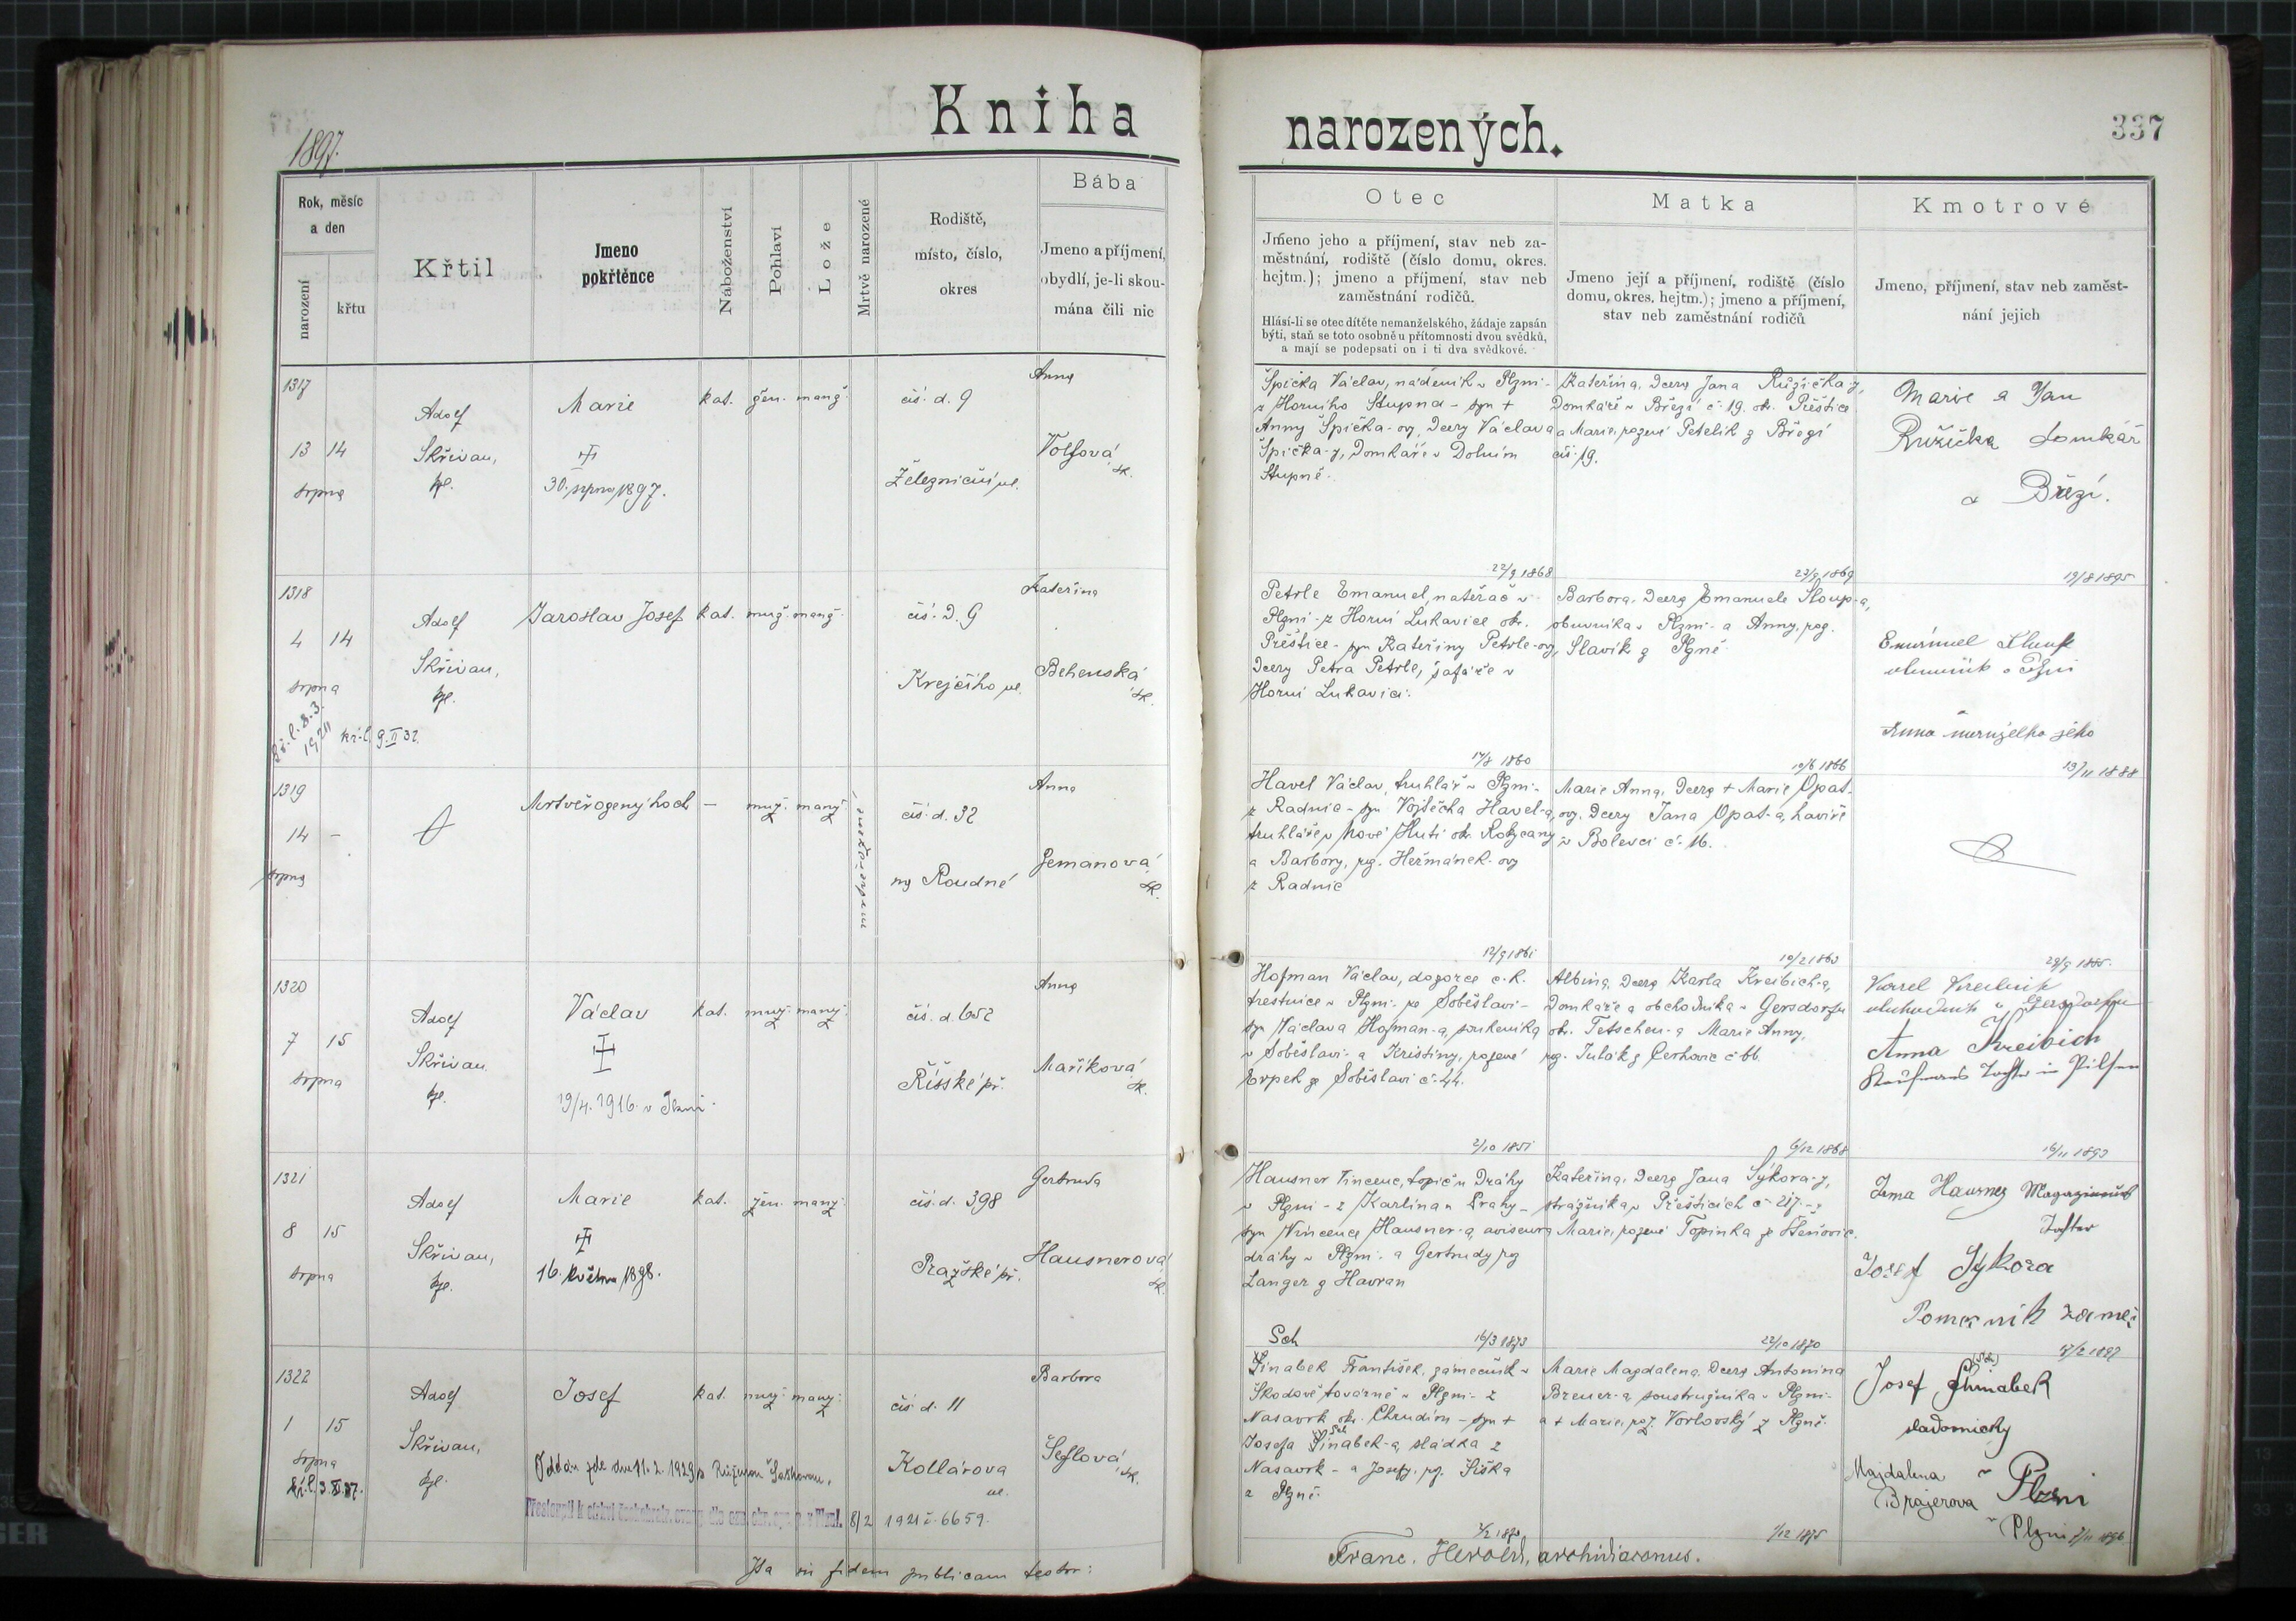 Kniha
narozených.
337
1897.
Rok, měsíc
a den
narození
křtu
Křtil
Jmeno
pokřtěnce
Náboženství
Pohlaví
Lože
Mrtvě narozené
Rodiště,
místo, číslo,
okres
Bába
Jmeno a příjmení,
obydlí, je-li skou-
mána čili nic
Otec
Jméno jeho a příjmení, stav neb za-
městnání, rodiště (číslo domu, okres.
hejtm.); jmeno a příjmení, stav neb
zaměstnání rodičů.
Hlásí-li se otec dítěte nemanželského, žádaje zapsán
býti, staň se toto osobně u přítomnosti dvou svědků,
a mají se podepsati on i ti dva svědkové.
Matka
Jmeno její a příjmení, rodiště (číslo
domu, okres. hejtm.); jmeno a příjmení,
stav neb zaměstnání rodičů
Kmotrové
Jmeno, příjmení, stav neb zaměst-
nání jejich
1317
13 14
srpna
Adolf
Skřivan,
kpl.
Marie
30. srpna 1897.
kat. žen. manž.
čís. d. 9
Železniční ul.
Anna
Volfová
sk.
Špička Václav, nádeník v Plzni-
z Horního Stupna - syn +
Anny Špička-ovy, dcery Václava
Špička-y, domkáře v Dolním
Stupně.
22/9 1868
Kateřina, dcera Jana Růžička-y,
domkáře v Březí č. 19. okr. Přeštice
a Marie, rozené Petelík z Březí
čís. 19.
Marie a Jan
Růžička domkář
z Březí.
1318
4 14
srpna
Adolf
Skřivan,
kpl.
kř. l. 9. II 32.
Jaroslav Josef
kat. muž. manž.
čís. d. 9
Krejčího ul.
Kateřina
Behenská
sk.
Petrle Emanuel, natěrač v
Plzni - z Horní Lukavice okr.
Přeštice - syn Kateřiny Petrle-ovy,
dcery Petra Petrle, šafáře v
Horní Lukavici.
17/8 1860
Barbora, dcera Emanuele Sloup-a,
obuvníka v Plzni - a Anny, roz.
Slavík z Plzně
10/6 1866
obuvník v Plzni
Anna manželka jeho
13/11 1888
1319
14 -
srpna
Mrtvěrozený hoch
- muž. manž.
mrtvěrozený
čís. d. 32
na Roudné
Anna
Zemanová
sk.
Havel Václav, truhlář v Plzni-
z Radnic - syn Vojtěcha Havel-a,
truhláře v Nové Huti okr. Rokycany
a Barbory, roz. Heřmánek-ovy
z Radnic
12/9 1861
Marie Anna, dcera + Marie Opat-
ovy, dcery Jana Opat-a, havíře
v Bolevci č. 16.
1320
7 15
srpna
Adolf
Skřivan
kpl.
Václav
19/4. 1916. v Plzni.
kat. muž. manž.
čís. d. 652
Říšské př.
Anna
Maříková
sk.
Hofman Václav, dozorce c. k.
trestnice v Plzni - ze Soběslavi -
syn Václava Hofman-a, soukeníka
v Soběslavi - a Kristiny, rozené
Erpek ze Soběslavi č. 44.
2/10 1851
Albina, dcera Karla Kreibich-a,
domkáře a obchodníka v Gersdorfu
okr. Tetschen - a Marie Anny,
roz. Tulak z Cerhovic č. 66.
6/12 1868
Karel Kreibich
obchodník v Gersdorfu
Anna Kreibich
Kaufmanns Tochter in Pilsen
16/11 1893
1321
8 15
srpna
Adolf
Skřivan,
kpl.
Marie
16. května 1898.
kat. žen. manž.
čís. d. 398
Pražské př.
Gertruda
Hausnerová
sk.
Hausner Vincenc, topič u dráhy
v Plzni - z Karlína u Prahy -
syn Vincence Hausner-a, aviseura
dráhy v Plzni - a Gertrudy roz.
Langer z Havran
16/3 1873
Kateřina, dcera Jana Sýkora-y,
strážníka v Přešticích č. 217 - a
Marie, rozené Topinka ze Štěnovic.
22/10 1870
Tochter
Josef Sýkora
1322
1 15
srpna
kř. l. 3. XI. 37.
Adolf
Skřivan,
kpl.
Josef
Oddán zde dne 11. 2. 1929 s Růženou
8/2 1921 č. 6659.
kat. muž. manž.
čís. d. 11
Kollárova
ul.
Barbora
Šeflová
sk.
Sch
Šinabek František, zámečník v
Škodově továrně v Plzni - z
Nasavrk okr. Chrudim - syn +
Josefa Šinabek-a, sládka z
Nasavrk - a Josefy, roz. Šiška
z Plzně.
Marie Magdalena, dcera Antonína
Breuer-a, soustružníka v Plzni-
a + Marie, roz. Vorlovský z Plzně.
1/12 1875
Josef Schinabek
sladovnický
v Plzni
Majdalena
Brajerova
v Plzni
Ita in fidem publicam testor:
Franc. Herold, archidiaconus.